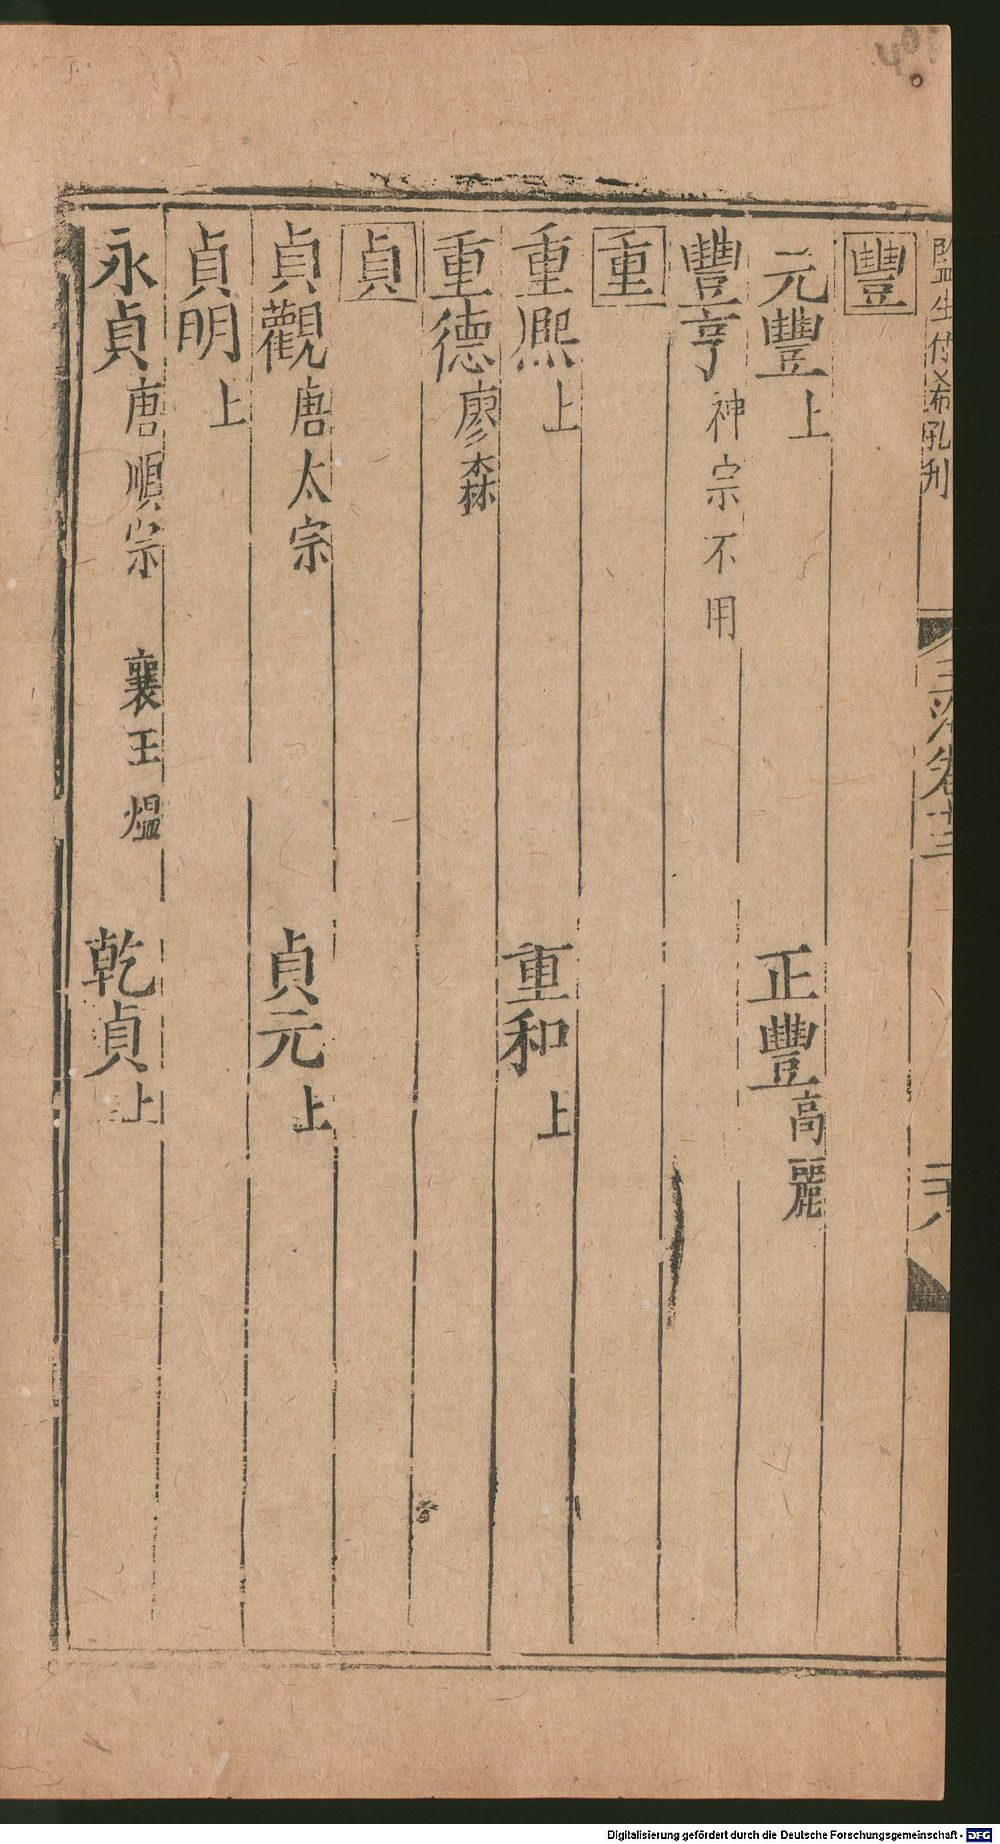 豐
元豐上 正豐高麗
豐亨神宗不用
重
重熈上 重和上
重德廖森
貞
貞觀唐太宗 貞元上
貞明上
永貞唐順宗 襄王熅 乾貞上
Digitalisierung gefördert durch die Deutsche Forschungsgemeinschaft - DFG